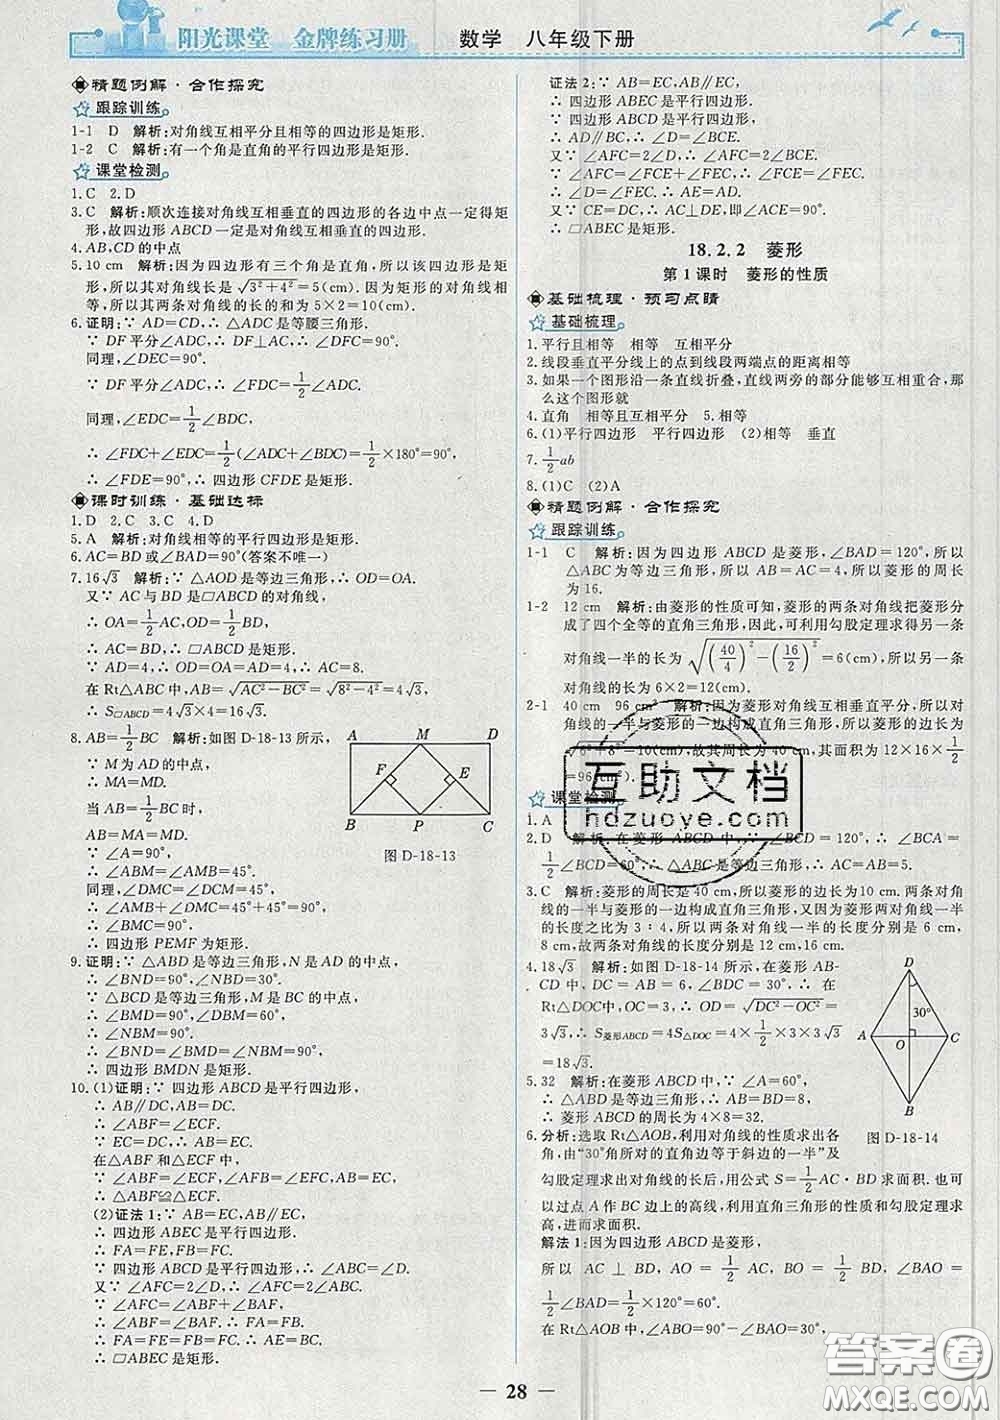 阳光课堂 金牌练习册 数学 八年级下册
精题例解·合作探究
跟踪训练
1-1 D 解析:对角线互相平分且相等的四边形是矩形.
1-2 C 解析:有一个角是直角的平行四边形是矩形.
课堂检测
1.C 2.D
3.C 解析:顺次连接对角线互相垂直的四边形的各边中点一定得矩
形,故四边形 ABCD 一定是对角线互相垂直的四边形.
4.AB,CD 的中点
5.10 cm 解析:因为四边形有三个角是直角,所以该四边形是矩
形,所以其对角线长是 √(3²+4²)=5(cm).因为矩形的对角线相
等,所以其两条对角线的长的和为 5×2=10(cm).
6.证明:∵ AD=CD,∴ △ADC 是等腰三角形.
∵ DF 平分∠ADC,∴ DF⊥AC,∴ ∠DFC=90°.
同理,∠DEC=90°.
∵ DF 平分∠ADC,∴ ∠FDC=1/2∠ADC.
同理,∠EDC=1/2∠BDC,
∴ ∠FDC+∠EDC=1/2(∠ADC+∠BDC)=1/2×180°=90°,
∴ ∠FDE=90°,∴ 四边形 CFDE 是矩形.
课时训练·基础达标
1.D 2.C 3.C 4.D
5.A 解析:对角线相等的平行四边形是矩形.
6.AC=BD 或∠BAD=90°(答案不唯一)
7.16√3 解析:∵ △AOD 是等边三角形,∴ OD=OA.
又∵ AC 与 BD 是▱ABCD 的对角线,
∴ OA=1/2AC,OD=1/2BD,
∴ AC=BD,∴ ▱ABCD 是矩形.
∵ AD=4,∴ OD=OA=AD=4,∴ AC=8.
在 Rt△ABC 中,AB=√(AC²-BC²)=√(8²-4²)=4√3,
∴ S▱ABCD=4√3×4=16√3.
8.AB=1/2BC 解析:如图 D-18-13 所示,
∵ M 为 AD 的中点,
∴ MA=MD.
当 AB=1/2BC 时,
AB=MA=MD.
∵ ∠A=90°,
∴ ∠AMB=∠ABM=45°.
同理,∠DMC=∠DCM=45°,
∴ ∠AMB+∠DMC=45°+45°=90°,
∴ ∠BMC=90°.
∴ 四边形 PEMF 为矩形.
A M D
F E
B P C
图 D-18-13
9.证明:∵ △ABD 是等边三角形,N 是 AD 的中点,
∴ ∠BND=90°,∠BND=30°.
∵ △BCD 是等边三角形,M 是 BC 的中点,
∴ ∠BMD=90°,∠DBM=60°.
∴ ∠NBM=90°.
∴ ∠BND=∠BMD=∠NBM=90°,
∴ 四边形 BMDN 是矩形.
10.(1)证明:∵ 四边形 ABCD 是平行四边形,
∴ AB∥DC,AB=DC.
∴ ∠ABF=∠ECF.
∵ EC=DC,∴ AB=EC.
在△ABF 和△ECF 中,
∵ ∠ABF=∠ECF,∠AFB=∠EFC,AB=EC,
∴ △ABF≌△ECF.
(2)证法 1:∵ AB=EC,AB∥EC,
∴ 四边形 ABEC 是平行四边形.
∴ FA=FE,FB=FC.
∵ 四边形 ABCD 是平行四边形,∴ ∠ABC=∠D.
又∵ ∠AFC=2∠D,∴ ∠AFC=2∠ABC.
∵ ∠AFC=∠ABF+∠BAF,
∴ ∠ABF=∠BAF,∴ FA=FB.
∴ FA=FE=FB=FC.∴ AE=BC.
∴ ▱ABEC 是矩形.
证法 2:∵ AB=EC,AB∥EC,
∴ 四边形 ABEC 是平行四边形.
∴ AD∥BC,∴ ∠D=∠BCE.
又∵ ∠AFC=2∠D,∴ ∠AFC=2∠BCE.
∵ ∠AFC=∠FCE+∠FEC,∴ ∠FCE=∠FEC.
∴ ∠D=∠FEC.∴ AE=AD.
又∵ CE=DC,∴ AC⊥DE,即∠ACE=90°.
∴ ▱ABEC 是矩形.
18.2.2 菱形
第 1 课时 菱形的性质
基础梳理·预习点睛
基础梳理
1.平行且相等 相等 互相平分
2.线段垂直平分线上的点到线段两端点的距离相等
3.如果一个图形沿一条直线折叠,直线两旁的部分能够互相重合,那
么这个图形就
4.直角 相等且互相平分 5.相等
6.(1)平行四边形 平行四边形 (2)相等 垂直
7.1/2ab
8.(1)C (2)A
精题例解·合作探究
跟踪训练
1-1 C 解析:因为四边形 ABCD 是菱形,∠BAD=120°,所以
△ABC 为等边三角形,所以 AB=AC=4,所以菱形的周长
为 16.
1-2 12 cm 解析:由菱形的性质可知,菱形的两条对角线把菱形分
成了四个全等的直角三角形,因此,可利用勾股定理求得另一条
对角线一半的长为 √((40/4)²-(16/2)²)=6(cm),所以另一条
对角线的长为 6×2=12(cm).
2-1 40 cm 96 cm² 解析:因为菱形对角线互相垂直平分,所以对
角线的一半与菱形的一边构成直角三角形,所以菱形的边长为
√(6²+8²)=10(cm),故其周长为 40 cm,其面积为 12×16×1/2
=96(cm²).
课堂检测
1.A
2.D 解析:在菱形 ABCD 中,∵ ∠BCD=120°,∴ ∠BCA=
1/2∠BCD=60°,∴ △ABC 是等边三角形,∴ AC=AB=5.
3.C 解析:菱形的周长是 40 cm,所以菱形的边长为 10 cm.两条对角
线的一半与菱形的一边构成直角三角形,又因为菱形两对角线
的长度之比为 3∶4,所以两条对角线一半的长度分别是 6 cm,
8 cm,故两条对角线的长度分别是 12 cm,16 cm.
4.18√3 解析:如图 D-18-14 所示,在菱形 AB-
CD 中,DC=AB=6,∠BDC=30°,∴ 在
Rt△DOC 中,OC=3,∴ OD=√(DC²-OC²)=
3√3,∴ S菱形ABCD=4S△DOC=4×1/2×3×3√3
=18√3.
5.32 解析:在菱形 ABCD 中,∵ ∠A=60°,
∴ △ABD 是等边三角形,∴ AB=BD=8,
∴ 菱形 ABCD 的周长为 4×8=32.
D
30°
A O C
B
图 D-18-14
6.分析:选取 Rt△AOB,利用对角线的性质求出各
角,由“30°角所对的直角边等于斜边的一半”及
勾股定理求出对角线的长后,用公式 S=1/2AC·BD 求面积.也可
以过点 A 作 BC 边上的高线,利用直角三角形的性质和勾股定理求
高,进而求面积.
解法 1:因为四边形 ABCD 是菱形,
所以 AC⊥BD,AO=1/2AC,BO=1/2BD,∠BAC=
1/2∠BAD=1/2×120°=60°.
在 Rt△AOB 中,∠ABO=90°-∠BAO=30°,
28
互助文档
hdzuoye.com
答案圈
MXQE.COM